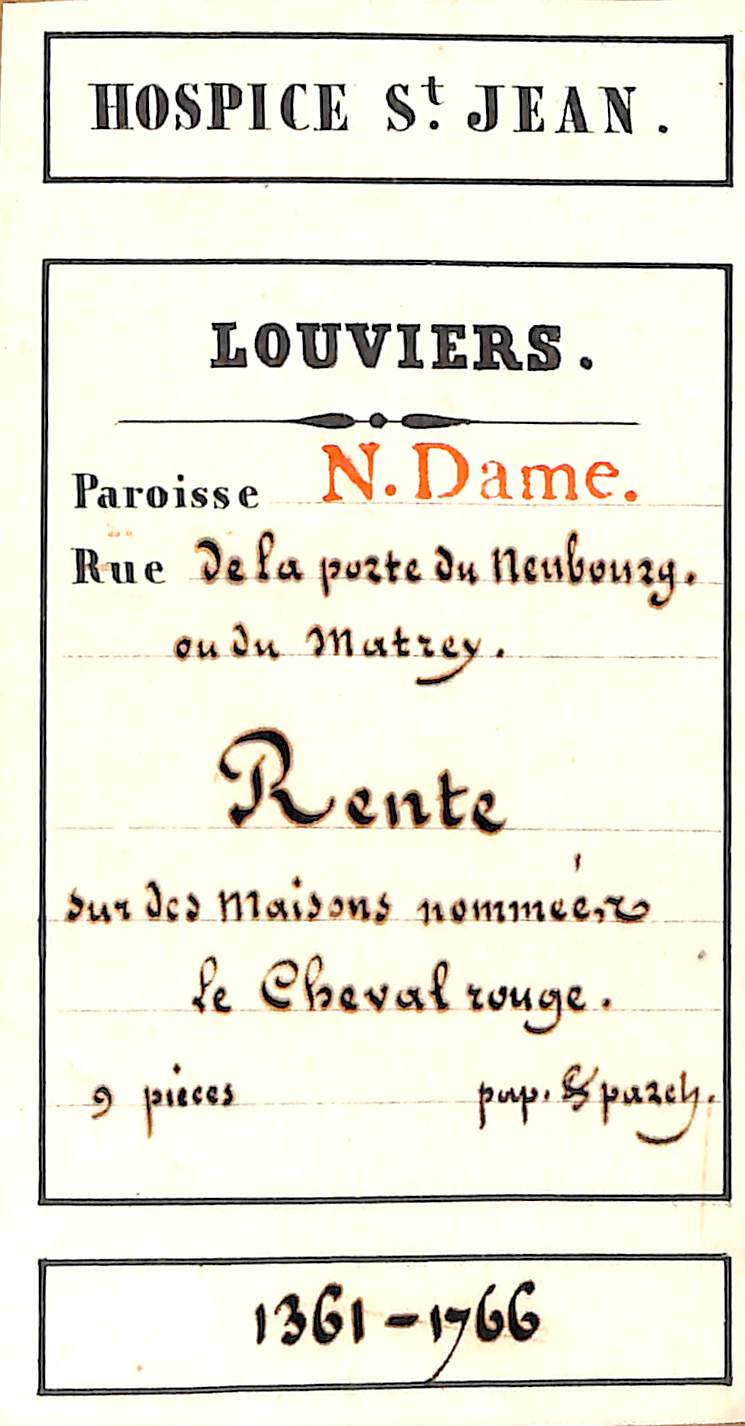 HOSPICE St. JEAN.
LOUVIERS.
Paroisse N. Dame.
Rue de la porte du Neubourg.
ou du Matrey.
Rente
sur des Maisons nommées
le Cheval rouge.
9 pièces pap. & parch.
1361-1766